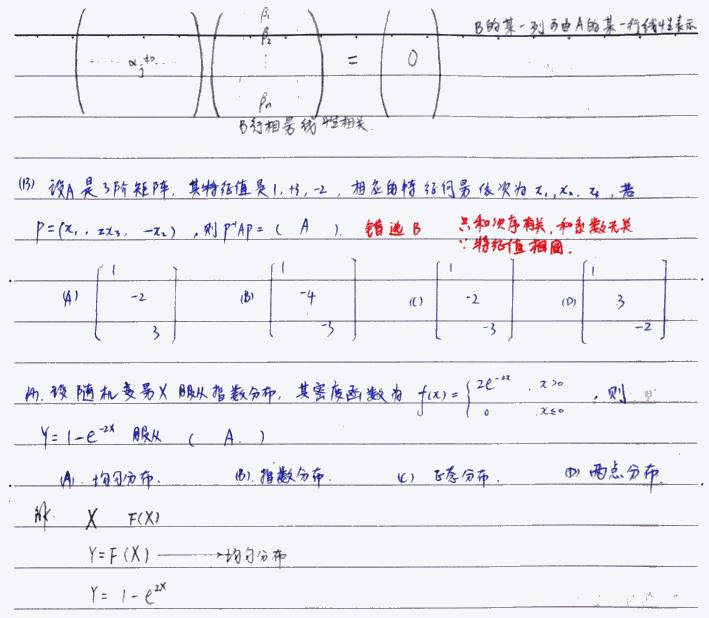 B的某一列可由A的某一行线性表示
β₁
β₂
⋮
βₙ
= 0
B行相易线性相关.
(13) 设A是3阶矩阵. 其特征值是1, +3, -2, 相应的特征向量依次为 x₁, x₂, x₃, 若
P=(x₁, 2x₃, -x₂), 则P⁻¹AP=( A ). 错选B 只和次序有关, 和系数无关
∵特征值相同.
(A) [1 -2 3] (B) [1 -4 -3] (C) [1 -2 -3] (D) [1 3 -2]
设随机变量X服从指数分布, 其密度函数为 f(x)={2e^{-2x}, x>0
0 x≤0, 则
Y=1-e^{-2X} 服从 ( A. )
(A). 均匀分布. (B). 指数分布. (C) 正态分布. (D) 两点分布
解 X F(X)
Y=F(X) → 均匀分布
Y=1-e^{2X}